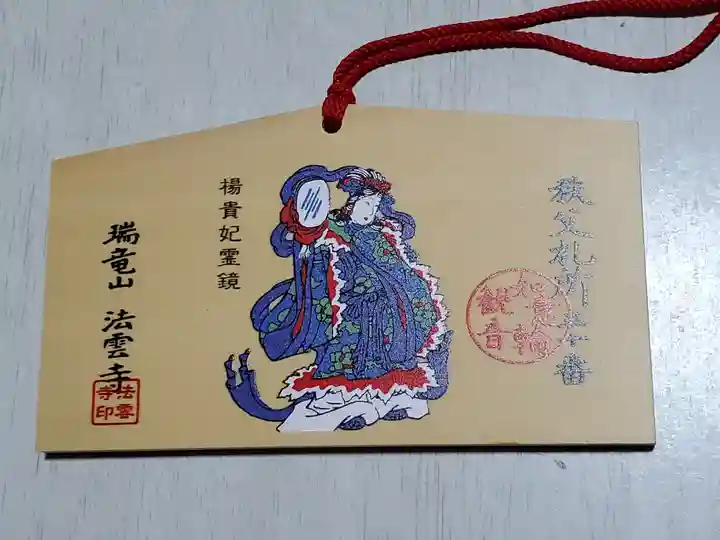 秩父札所卅番
如意輪
観音
楊貴妃霊鏡
瑞竜山 法雲寺
法雲
寺印